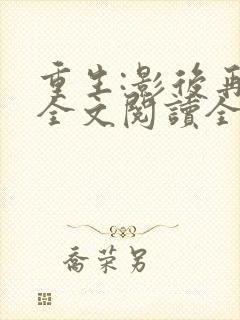 重生:影後再
全文閱讀全
喬榮另